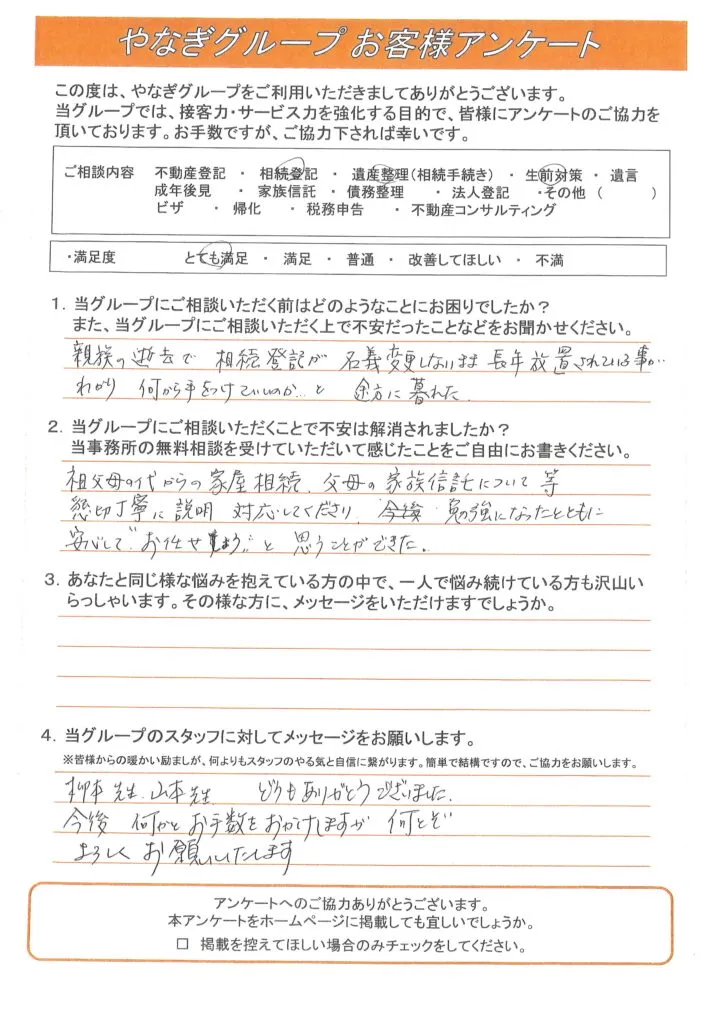 やなぎグループ お客様アンケート
この度は、やなぎグループをご利用いただきましてありがとうございます。
当グループでは、接客力・サービス力を強化する目的で、皆様にアンケートのご協力を
頂いております。お手数ですが、ご協力下されば幸いです。
ご相談内容 不動産登記 ・ 相続登記 ・ 遺産整理(相続手続き) ・ 生前対策 ・ 遺言
成年後見 ・ 家族信託 ・ 債務整理 ・ 法人登記 ・その他 ( )
ビザ ・ 帰化 ・ 税務申告 ・ 不動産コンサルティング
・満足度 とても満足 ・ 満足 ・ 普通 ・ 改善してほしい ・ 不満
1. 当グループにご相談いただく前はどのようなことにお困りでしたか?
また、当グループにご相談いただく上で不安だったことなどをお聞かせください。
親族の逝去で 相続登記が 名義変更しないまま 長年放置されている事が
わかり 何から手をつけていいのか…と 途方に暮れた.
2. 当グループにご相談いただくことで不安は解消されましたか?
当事務所の無料相談を受けていただいて感じたことをご自由にお書きください。
祖父母の代からの家屋相続、父母の家族信託について 等
懇切丁寧に説明 対応してくださり、今後 勉強になったとともに
安心して"お任せしよう"と 思うことができた.
3. あなたと同じ様な悩みを抱えている方の中で、一人で悩み続けている方も沢山い
らっしゃいます。その様な方に、メッセージをいただけますでしょうか。
4. 当グループのスタッフに対してメッセージをお願いします。
※皆様からの暖かい励ましが、何よりもスタッフのやる気と自信に繋がります。簡単で結構ですので、ご協力をお願いします。
柳本先生、山本先生 どうもありがとうございました.
今後 何かとお手数をおかけしますが 何とぞ
よろしくお願いいたします
アンケートへのご協力ありがとうございます。
本アンケートをホームページに掲載しても宜しいでしょうか。
□ 掲載を控えてほしい場合のみチェックをしてください。